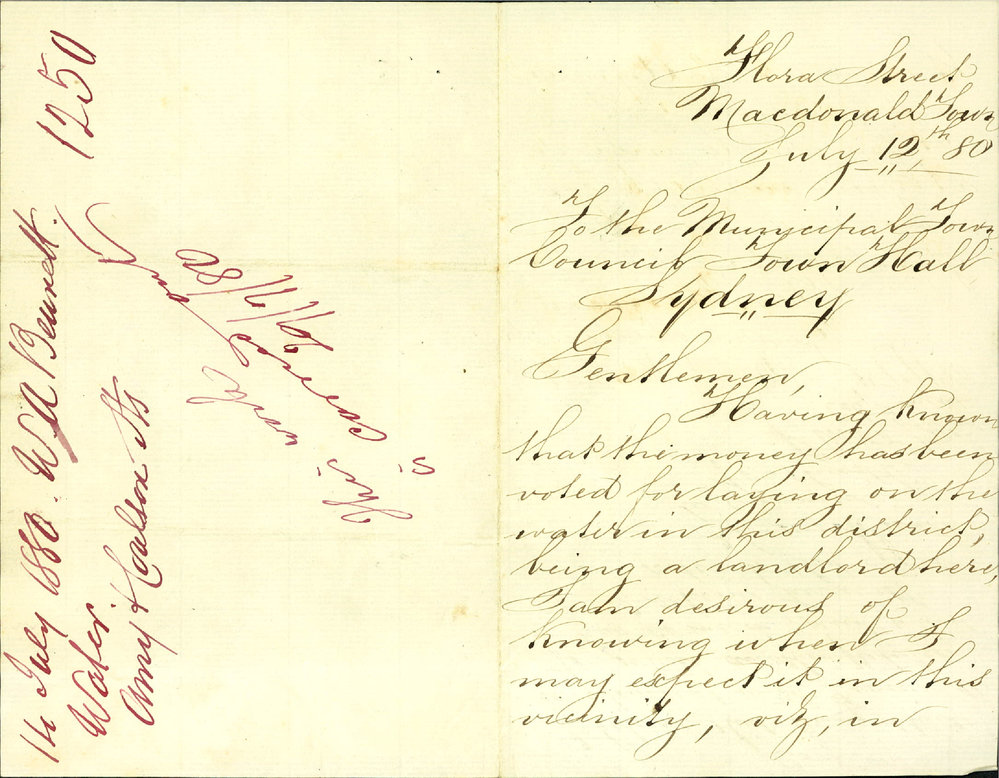 14 July 1880. W A Bennett. 1250
Water
Amy & Coulson Sts
This case
is
19/7/80
Flora Street
Macdonald Town
July 12th 80
To the Municipal Town
Council Town Hall
Sydney
Gentlemen,
Having known
that the money has been
voted for laying on the
water in this district,
being a landlord here,
I am desirous of
knowing when I
may expect it in this
vicinity, viz, in